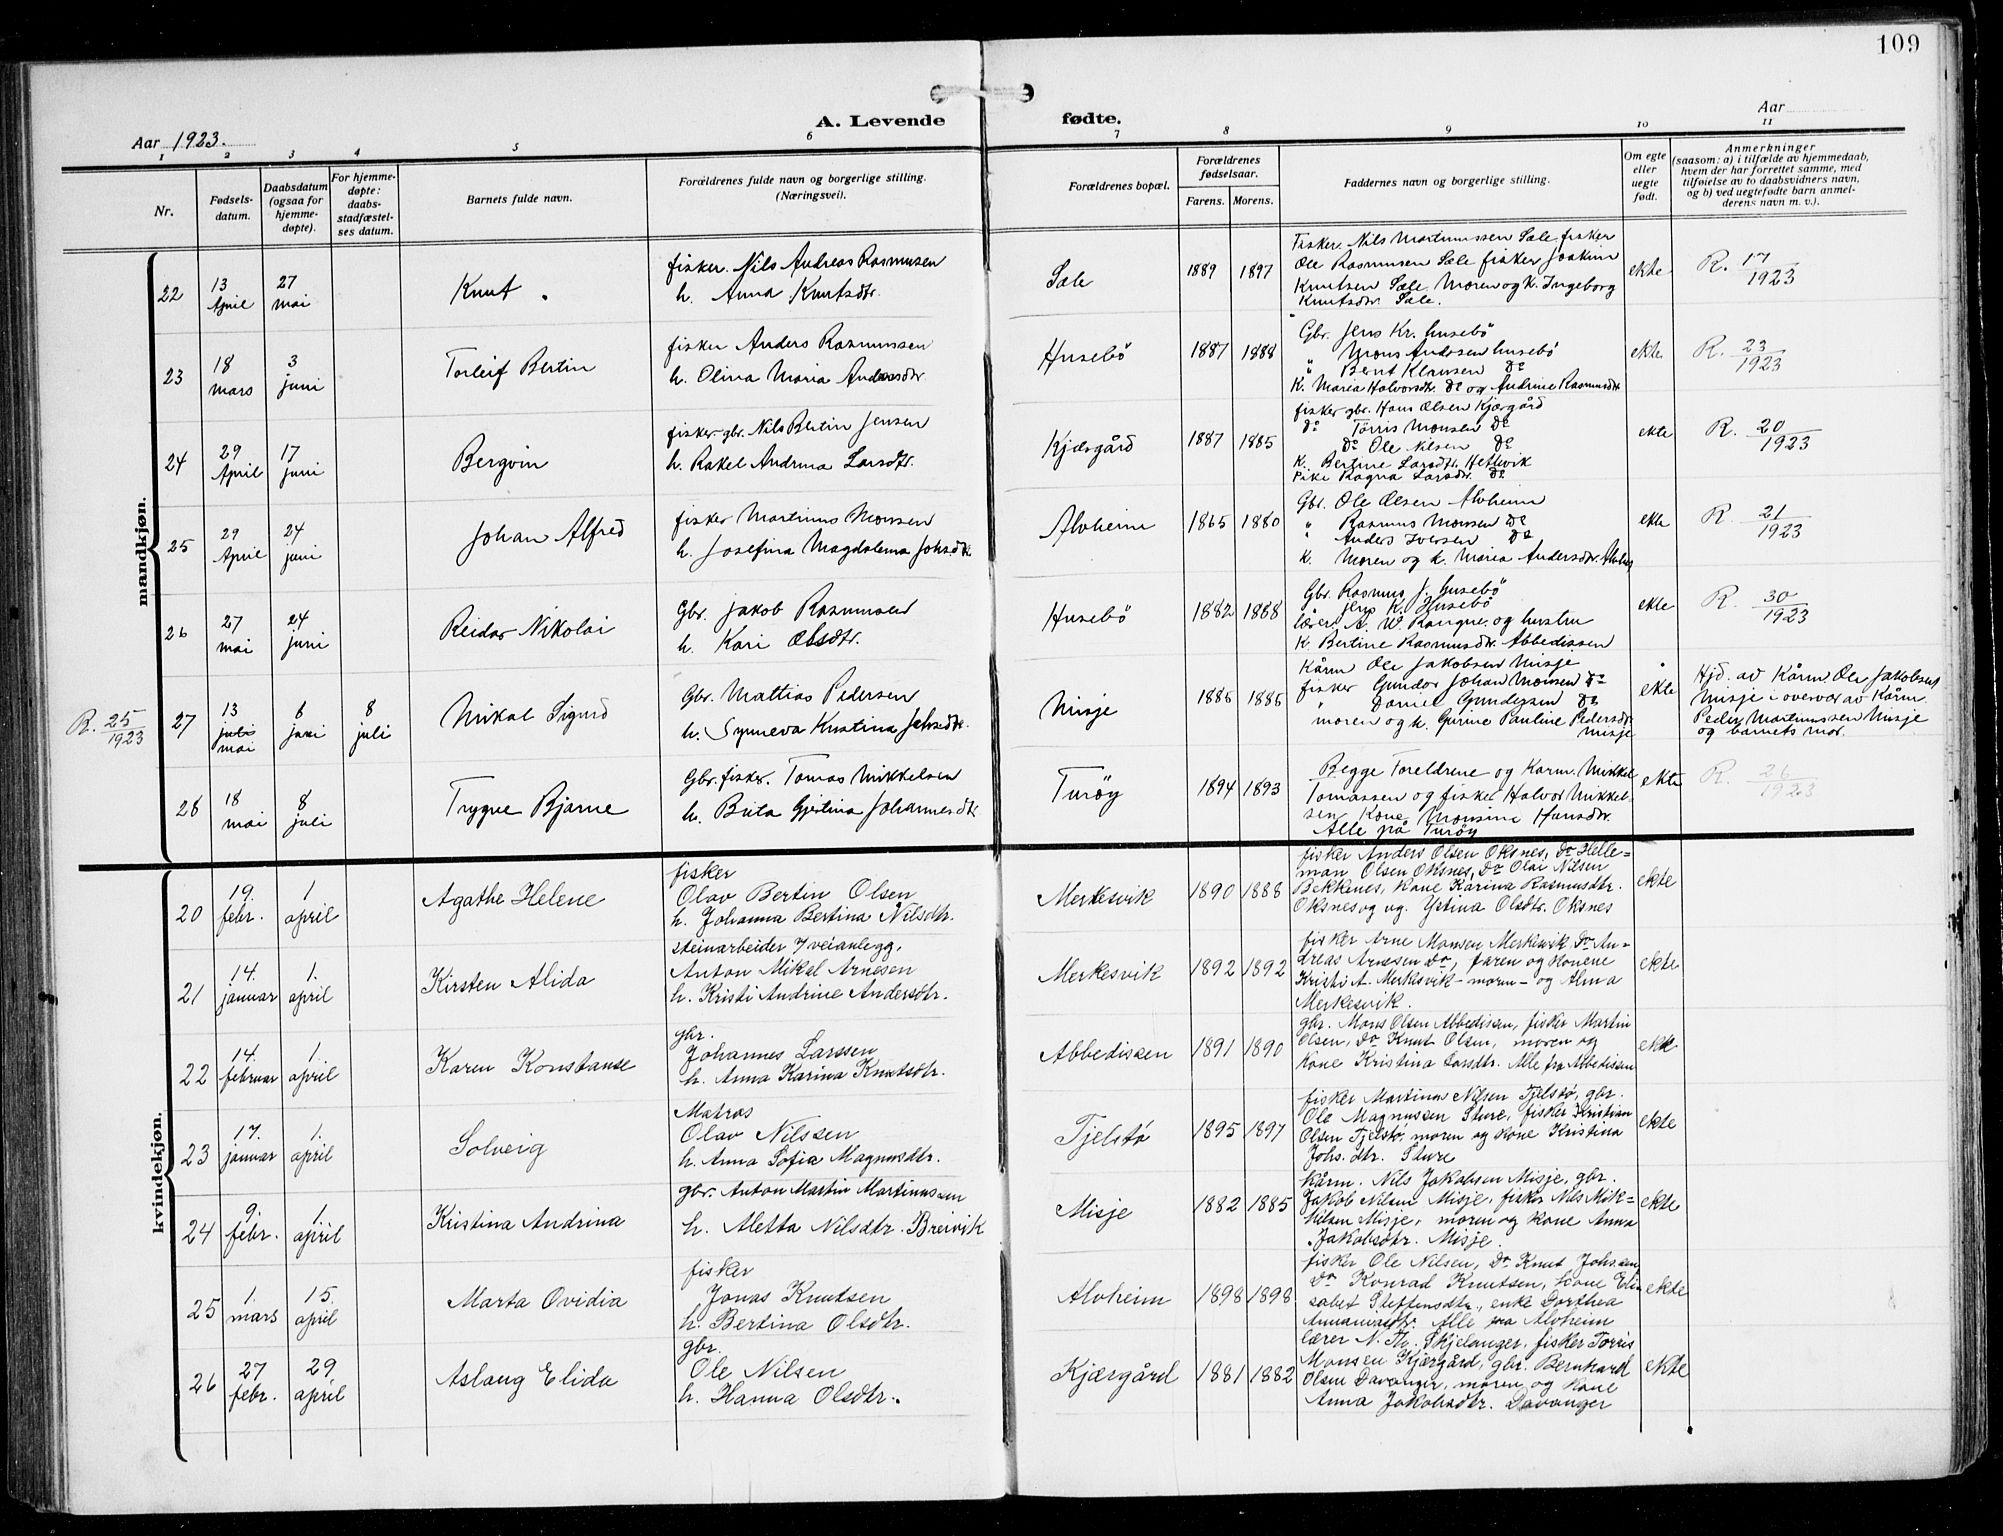 109
A. Levende fødte.
Aar 1923.
Aar
1 2 3 4 5 6 7 8 9 10 11
Nr.
Fødsels-
datum.
Daabsdatum
(ogsaa for
hjemme-
døpte).
For hjemme-
døpte:
daabs-
stadfæstel-
ses datum.
Barnets fulde navn.
Forældrenes fulde navn og borgerlige stilling.
(Næringsvei).
Forældrenes bopæl.
Forældrenes
fødselsaar.
Farens. Morens.
Faddernes navn og borgerlige stilling.
Om egte
eller
uegte
født.
Anmerkninger
(saasom: a) i tilfælde av hjemmedaab,
hvem der har forrettet samme, med
tilføielse av to daabsvidners navn,
og b) ved uegtefødte barn anmel-
derens navn m. v.).
mandkjøn.
22
13 April
27 mai
Knut
fisker. Nils Andreas Rasmusen
h. Anna Knutsdtr.
Sæle
1889 1897
Fisker. Nils Martinussen Sæle, fisker
Ole Rasmusen Sæle fisker Joakim
Knutsen Sæle Moren og k. Ingeborg
Knutsdtr. Sæle.
ekte
R. 17/1923
23
18 mars
3 juni
Torleif Bertin
fisker Anders Rasmussen
h. Olina Maria Andersdtr.
Husebö
1887 1888
Gbr. Jens Kr. Husebö
" Mons Andersen Husebö
" Bernt Klausen Do
K. Maria Halvorsdtr. Do og Andrine Rasmusdtr
ekte
R. 23/1923
24
29 April
17 juni
Bergvin
fisker-gbr. Nils Bertin Jensen
h. Rakel Andrina Larsdtr.
Kjærgård
1887 1885
fisker gbr. Hans Olsen Kjærgård
Do Torris Monsen Do
Do Ole Nilsen Do
K. Bertine Larsdtr. Hellevik
Pike Ragna Larsdtr. Do
ekte
R. 20/1923
25
29 April
24 juni
Johan Alfred
fisker Martinus Monsen
h. Josefina Magdalena Johsdtr
Alvheim
1865 1880
Gbr. Ole Olsen Alvheim
" Rasmus Monsen Do
" Anders Iversen Do
K. Moren og k. Maria Andersdtr. Alvheim
ekte
R. 21/1923
26
27 mai
24 juni
Reidar Nikolai
Gbr. Jakob Rasmusen
h. Kari Olsdtr.
Husebö
1882 1888
Gbr. Rasmus J. Husebö
" Jens K. Husebö
lærer A. W. og hustru
K. Bertine Rasmusdtr. Abbedissen
ekte
R. 30/1923
R. 25/1923
27
13 juli mai
8 juni
8 juli
Mikal Sigurd
Gbr. Mattias Pedersen
h. Synneva Kristina Johsdtr.
Misje
1885 1885
Kårm Ole Jakobsen Misje
fisker Gunder Johan Monsen Do
" Daniel Gundersen Do
moren og k. Gurine Pauline Pedersdtr
Misje
ekte
Hjd. av Kårm. Ole Jakobsen
Misje i overvær av Kårm.
Peder Martinussen Misje
og barnets mor.
28
18 mai
8 juli
Trygve Bjarne
Gbr. fisker. Tomas Mikkelsen
h. Brita Gjertina Johannesdtr
Turöy
1894 1893
Begge Foreldrene og Kårm. Mikkel
Tomassen og fisker Halvor Mikkel-
sen Kone Monsine Hansdtr.
Alle på Turöy
ekte
R. 26/1923
kvindekjøn.
20
19. febr.
1. april
Agathe Helene
fisker
Olav Bertin Olsen
h. Johanna Bertina Nilsdtr.
Merkesvik
1890 1888
fisker Anders Olsen Oksnes, Do Helle-
man Olsen Oksnes, Do Olai Nilsen
Bekkenes, kone Karina Rasmusdtr.
Oksnes og ug. Ystina Olsdtr. Oksnes
ekte
21
14. januar
1. april
Kirsten Alida
steinarbeider / veianlegg,
Anton Mikal Arnesen
h. Kristi Andrine Andersdtr.
Merkesvik
1892 1892
fisker Arne Monsen Merkesvik, Do An-
dreas Arnesen Do, faren og konene
Kristi A. Merkesvik - moren - og Alma
Merkesvik.
ekte
22
14. februar
1. april
Karen Konstanse
gbr.
Johannes Larssen
h. Anna Karina Knutsdtr.
Abbedissen
1891 1890
gbr. Mons Olsen Abbedissen, fisker Martin
Olsen, Do Knut Olsen, moren og
kone Kristina Larsdtr. Alle fra Abbedissen
ekte
23
17. januar
1. april
Solveig
Matros
Olav Nilssen
h. Anna Sofia Magnusdtr.
Tjelstø
1895 1897
fisker Martinus Nilsen Tjelstø, gbr.
Ole Magnussen Sture, fisker Kristian
Olsen Tjelstø, moren og kone Kristina
Johs.dtr. Sture
ekte
24
9. febr.
1. april
Kristina Andrina
gbr. Anton Martin Martinussen
h. Aletta Nilsdtr. Breivik
Misje
1882 1885
kårm. Nils Jakobsen Misje, gbr.
Jakob Nilsen Misje, fisker Nils Mik-
Nilsen Misje, moren og kone Anna
Jakobsdtr. Misje.
ekte
25
1. mars
15. april
Marta Ovidia
fisker
Jonas Knutsen
h. Bertina Olsdtr.
Alvheim
1898 1898
fisker Ole Nilsen, Do Knut Johssen,
Do Konrad Knutsen, kone Eli-
sabet Steffensdtr., enke Dorthea
Alle fra Alvheim
ekte
26
27 febr.
29. april
Aslaug Elida
gbr.
Ole Nilsen
h. Hanna Olsdtr.
Kjærgård
1881 1882
lærer N. Th. Skjelanger, fisker Torris
Monsen Kjærgård, gbr. Bernhard
Olsen Davanger, moren og kone
Anna Jakobsdtr. Davanger
ekte